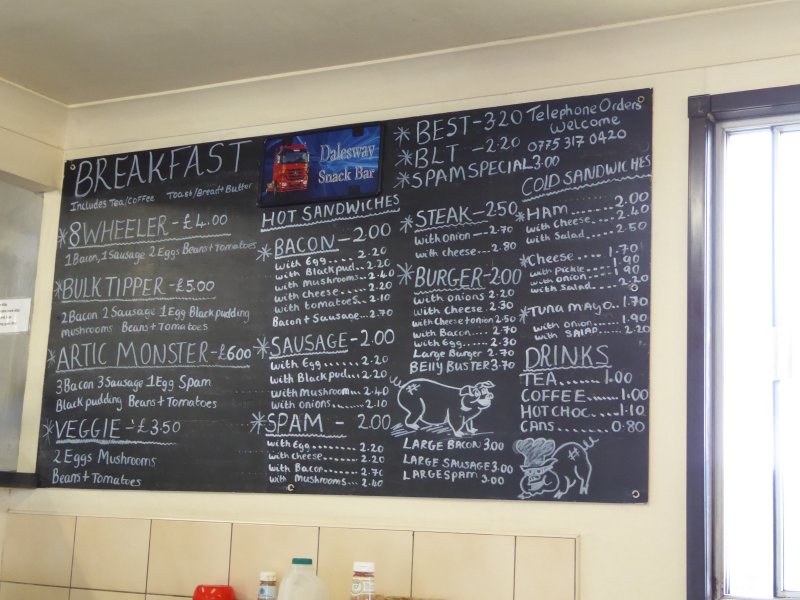 BREAKFAST
Includes Tea/Coffee Toast/Bread+Butter
*8 WHEELER - £4.00
1 Bacon, 1 Sausage 2 Eggs Beans + Tomatoes
*BULK TIPPER - £5.00
2 Bacon 2 Sausage 1 Egg Black pudding
mushrooms Beans + Tomatoes
*ARTIC MONSTER - £6.00
3 Bacon 3 Sausage 1 Egg Spam
Black pudding Beans + Tomatoes
*VEGGIE - £3.50
2 Eggs Mushrooms
Beans + Tomatoes
Dalesway
Snack Bar
HOT SANDWICHES
*BACON - 2.00
with Egg.... 2.20
with Black pud.. 2.20
with mushrooms.. 2.40
with cheese... 2.20
with tomatoes... 2.10
Bacon + Sausage... 2.70
*SAUSAGE - 2.00
with Egg....... 2.20
with Black pud... 2.20
with Mushroom... 2.40
with onions..... 2.10
*SPAM - 2.00
with Egg.......... 2.20
with cheese....... 2.20
with Bacon........ 2.70
with Mushrooms... 2.40
*BEST - 3.20
*BLT - 2.20
*SPAM SPECIAL 3.00
*STEAK - 2.50
with onion - 2.70
with cheese - 2.80
*BURGER - 2.00
with onions 2.20
with Cheese.. 2.30
with Cheese + onion 2.50
with Bacon..... 2.70
with Egg...... 2.30
Large Burger 2.70
BEllY BUSTER 3.70
LARGE BACON 3.00
LARGE SAUSAGE 3.00
LARGE SPAM 3.00
Telephone Orders
Welcome
0775 317 0420
COLD SANDWICHES
*HAM........ 2.00
with Cheese.... 2.40
with Salad..... 2.50
*Cheese..... 1.70
with Pickle.... 1.90
with onion..... 1.90
with Salad..... 2.20
*TUNA MAYO.. 1.70
with onion... 1.90
with SALAD... 2.20
DRINKS
TEA........ 1.00
COFFEE...... 1.00
HOT CHOC.... 1.10
CANS...... 0.80